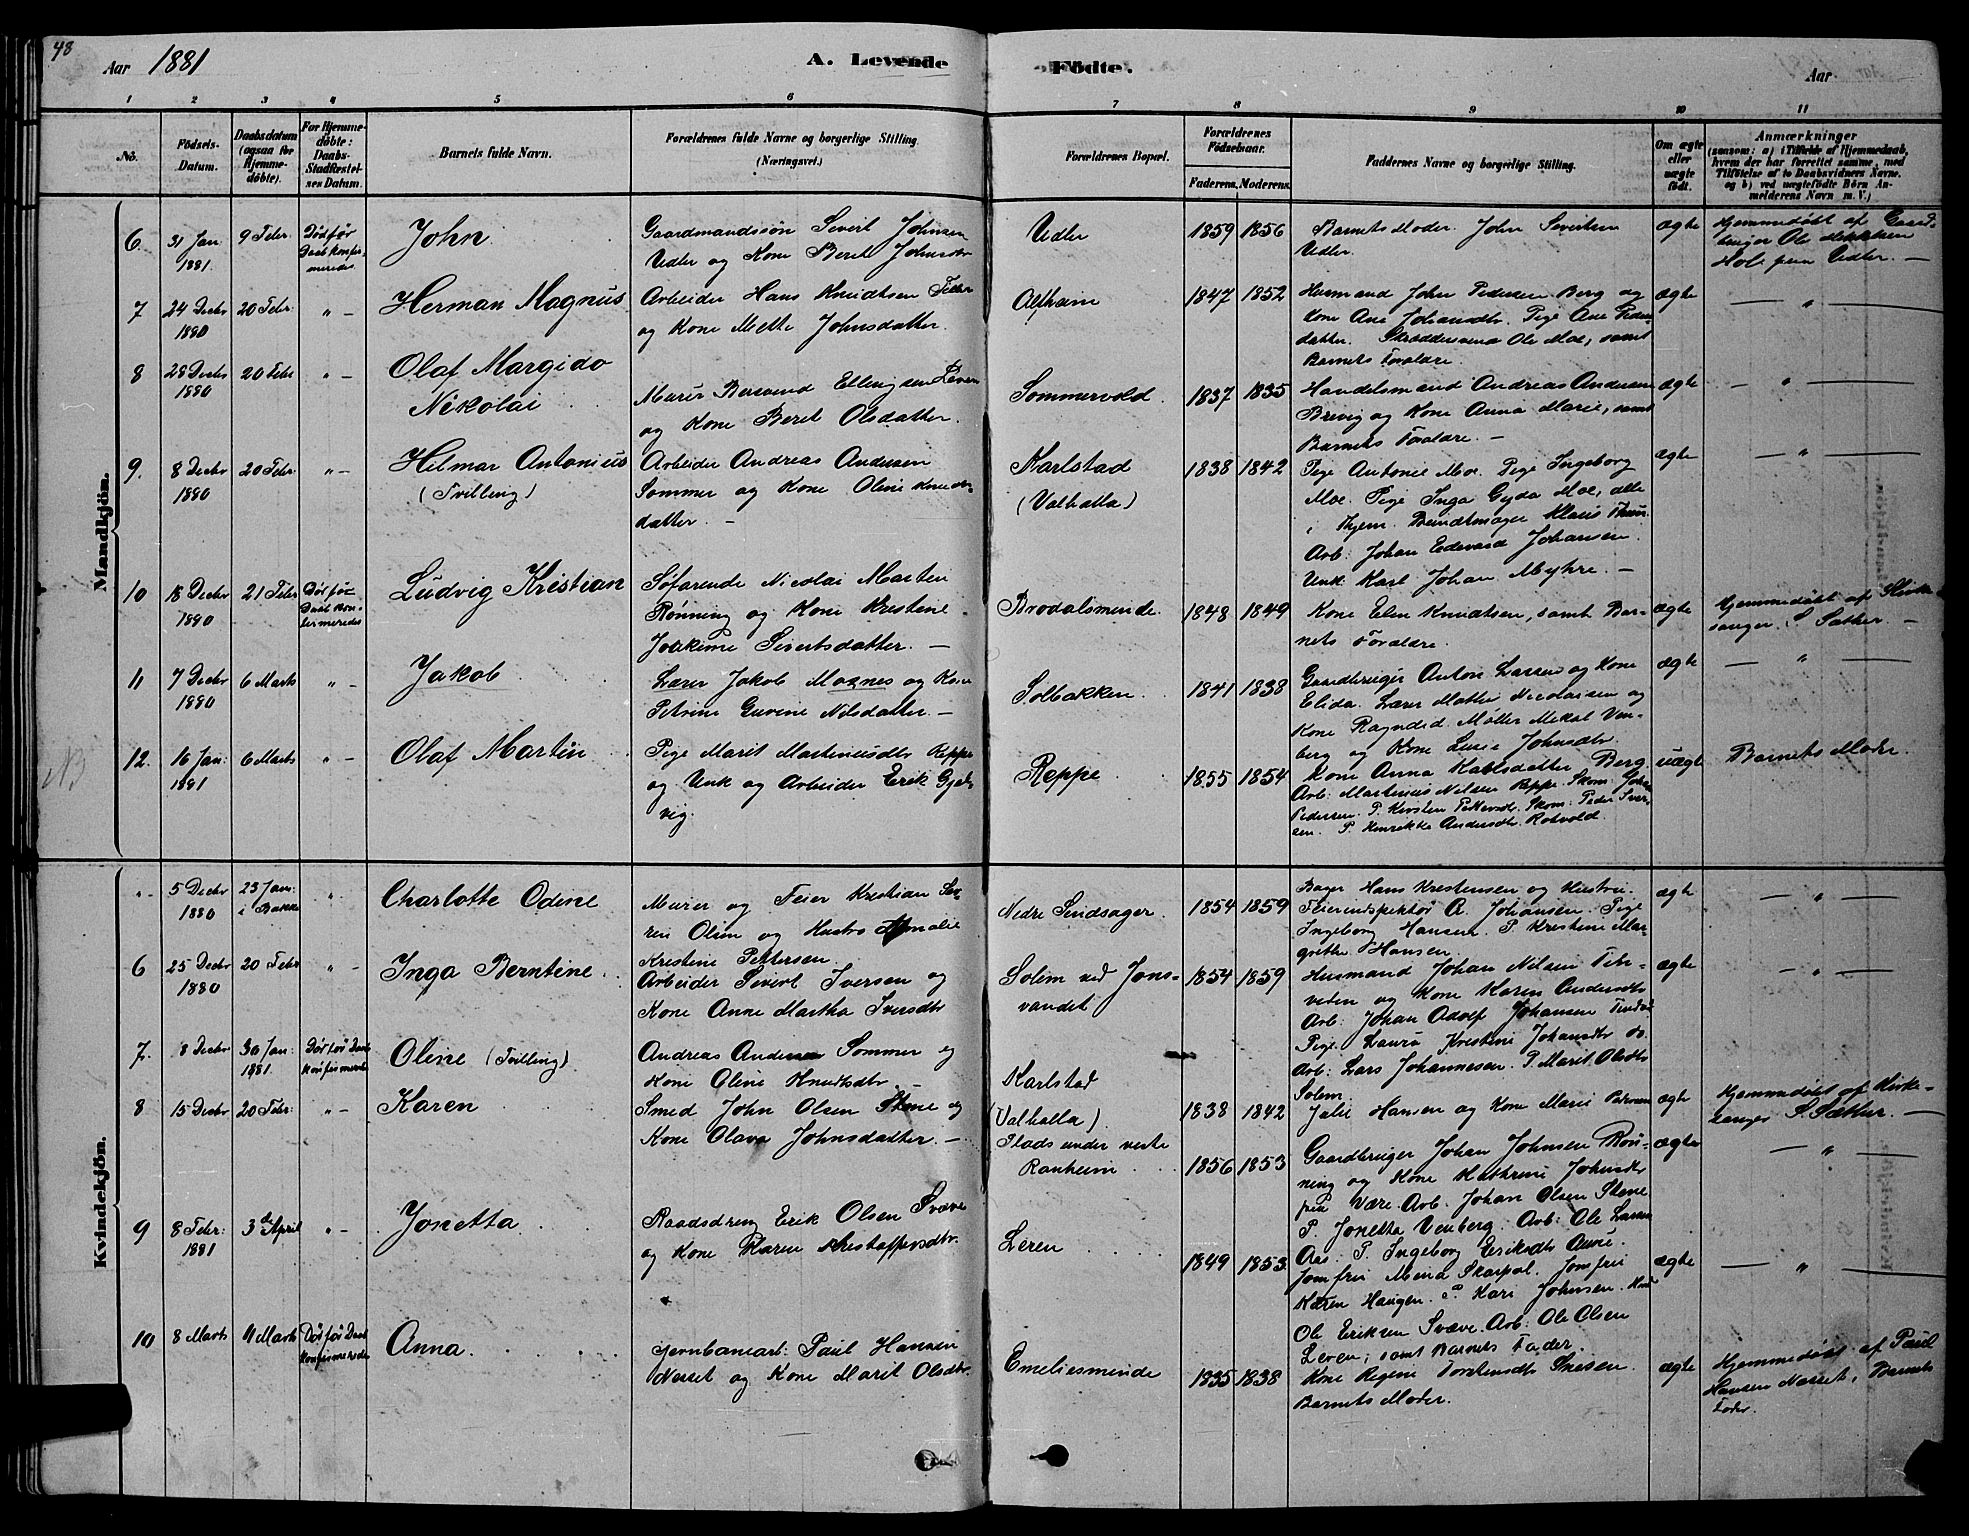 48
Aar 1881
A. Levende
Födte.
Aar
1 2 3 4 5 6 7 8 9 10 11
No.
Födsels-
Datum.
Daabsdatum
(ogsaa for
Hjemme-
döbte).
For Hjemme-
döbte:
Daabs-
Stadfæstel-
ses Datum.
Barnets fulde Navn.
Forældrenes fulde Navne og borgerlige Stilling
(Næringsvei.)
Forældrenes Bopæl.
Forældrenes
Födselsaar.
Faderens. Moderens.
Faddernes Navne og borgerlige Stilling.
Om ægte
eller
uægte
födt.
Anmærkninger
(saasom: a) i Tilfælde af Hjemmedaab,
hvem der har forrettet samme, med
Tilföielse af to Daabsvidners Navne.
og b) ved uægtefödte Börn An-
melderens Navn m. V.)
Mandkjön.
6. 31 Jan 1881. 9 Febr Död før Daab konfir-meredes
John
Gaardmandssøn Sivert Johnsen
Vedler og Kone Beret Johnsdtr
Vedler
1859 1856
Barnets Moder. John Sivertsen
Vedler.
ægte
Hjemmedöbt af Gaard-
bruger Ole
7 24 Decbr 1880 20 Febr. " -
Herman Magnus
Arbeider Hans Knudtsen
og Kone Mette Johnsdatter.
1847 1852
Husmand John Pedersen Berg og
Kone Ane Johansdtr. Pige Ane Peders-
datter. Ole Moe, samt
Barnets Forældre.
ægte
— " —
8 28 Decbr 1880 20 Febr " -
Olaf Margido
Nikolai
Murer Ellingsen
og Kone Beret Olsdatter.
Sommervold.
1837 1835
Handelsmand Andreas Andersen
Brevig og Kone Anna Marie, samt
Barnets Forældre. —
ægte
— " —
9. 8 Decbr 1880 20 Febr " -
Hilmar Antonius
(Tvilling)
Arbeider Andreas Andersen
Sommer og Kone Oline Knuds-
datter. —
Karlstad
(Valhalla)
1838 1842
Pige Antonie Moe. Pige Ingeborg
Moe. Pige Inga Gyda Moe, alle
i Thjem. Bundtmager Klaus
Arb: Johan Edevard Johansen.
Unk. Karl Johan Myhre. —
ægte
— " —
10 18 Decbr 1880 21 Febr
Ludvig Kristian
Søfarende Nicolai Martin
Rønning og Kone Kristine
Joakime Sivertsdatter. —
Brodalsminde.
1848 1849
Kone Elen Knudtsen, samt Bar-
nets Forældre.
ægte
Hjemmedöbt af Kirke
sanger S Sæther. —
11 7 Decbr 1880 6 Marts " -
Jakob
Lærer Jakob Moxnes og Kone
Petrine Guvine Nilsdatter. —
Solbakken.
1841 1838
Gaardbruger Anton Larsen og Kone
Elida. Lærer Mathis Nicolaisen og
Kone Ragndid. Møller Mikal Ven-
berg og Kone Johnsdtr.
ægte
— " —
NB 12. 16 Jan: 1881 6 Marts " -
Olaf Martin
Pige Marit Martinusdtr Reppe
og Unk og Arbeider Erik
vig.
Reppe
1855 1854
Kone Anna Karlsdatter Berg
Arb: Martinus Nilsen Reppe. Skom: John
Pedersen. P. Kirsten Pettersdtr. Skom: Peder Iver-
sen. P. Henrikke Andersdtr. Rotvold.
uægte
Barnets Moder.
Kvindekjön.
". 5 Decbr 1880 23 Jan: i Bakke "
Charlotte Odine
Murer og Feier Kristian Sø-
ren Olsen og Hustro Amalie
Kristine Pettersen.
Nedre Sindsager.
1854 1859
Bager Hans Kristensen og Hustru.
Feierinspektør A. Johansen. Pige
Ingeborg Hansen. P. Kristine Mar-
grethe Hansen.
ægte
— " —
6 25 Decbr 1880 20 Febr " -
Inga Berntine.
Arbeider Sivert Iversen og
Kone Anne Martha Iversdtr
Solem ved Jons-
vandet
1854 1859
Husmand Johan Nilsen
og Kone Karen Andersdtr
Arb: Johan Adolf Johansen
Pige Laura Kristine Johansdtr do.
Arb: Lars Johannesen. P. Marit Olsdtr
Solem.
ægte
— " —
7. 8 Decbr 30 Jan: 1881.
Oline (Tvilling)
Andreas Andersen Sommer og
Kone Oline Knudsdtr. —
Karlstad
(Valhalla).
1838 1842
Hansen og Kone Marie
ægte
Hjemmedöbt af Kirke-
sanger S Sæther. —
8 15 Decbr 20 Febr: " -
Karen
Smed John Olsen Stene og
Kone Olava Johnsdatter. —
Plads under vestre
Ranheim
1856 1853
Gaardbruger Johan Johnsen Røn-
ning og Kone Kathrine Johnsdtr
fra Være. Arb. Johan Olsen Stene
P. Jonetta Venberg. Arb: Ole Larsen
Aas. P. Ingeborg Eriksdtr
ægte
— " —
9 8 Febr: 1881 3 April " -
Jonetta
Gaardsdreng Erik Olsen Svæve
og Kone Karen Kristoffersdtr.
Leren
1849 1853
Jomfru Mina Skarpal. Jomfru
Karen Haugen. P. Kari Johnsen.
Ole Eriksen Svæve. Arb: Ole Olsen
Leren, samt Barnets Fader.
ægte
— " —
10 8 Marts 9 Marts Død før Daab konfirmeredes
Anna.
Jernbanearb: Paul Hansen
Nesset og Kone Marit Olsdtr.
Emeliesminde
1835 1838
Kone Regine Torstensdtr
Barnets Moder.
ægte
Hjemmedöbt af Paul
Hansen Nesset, Barnets
Fader.